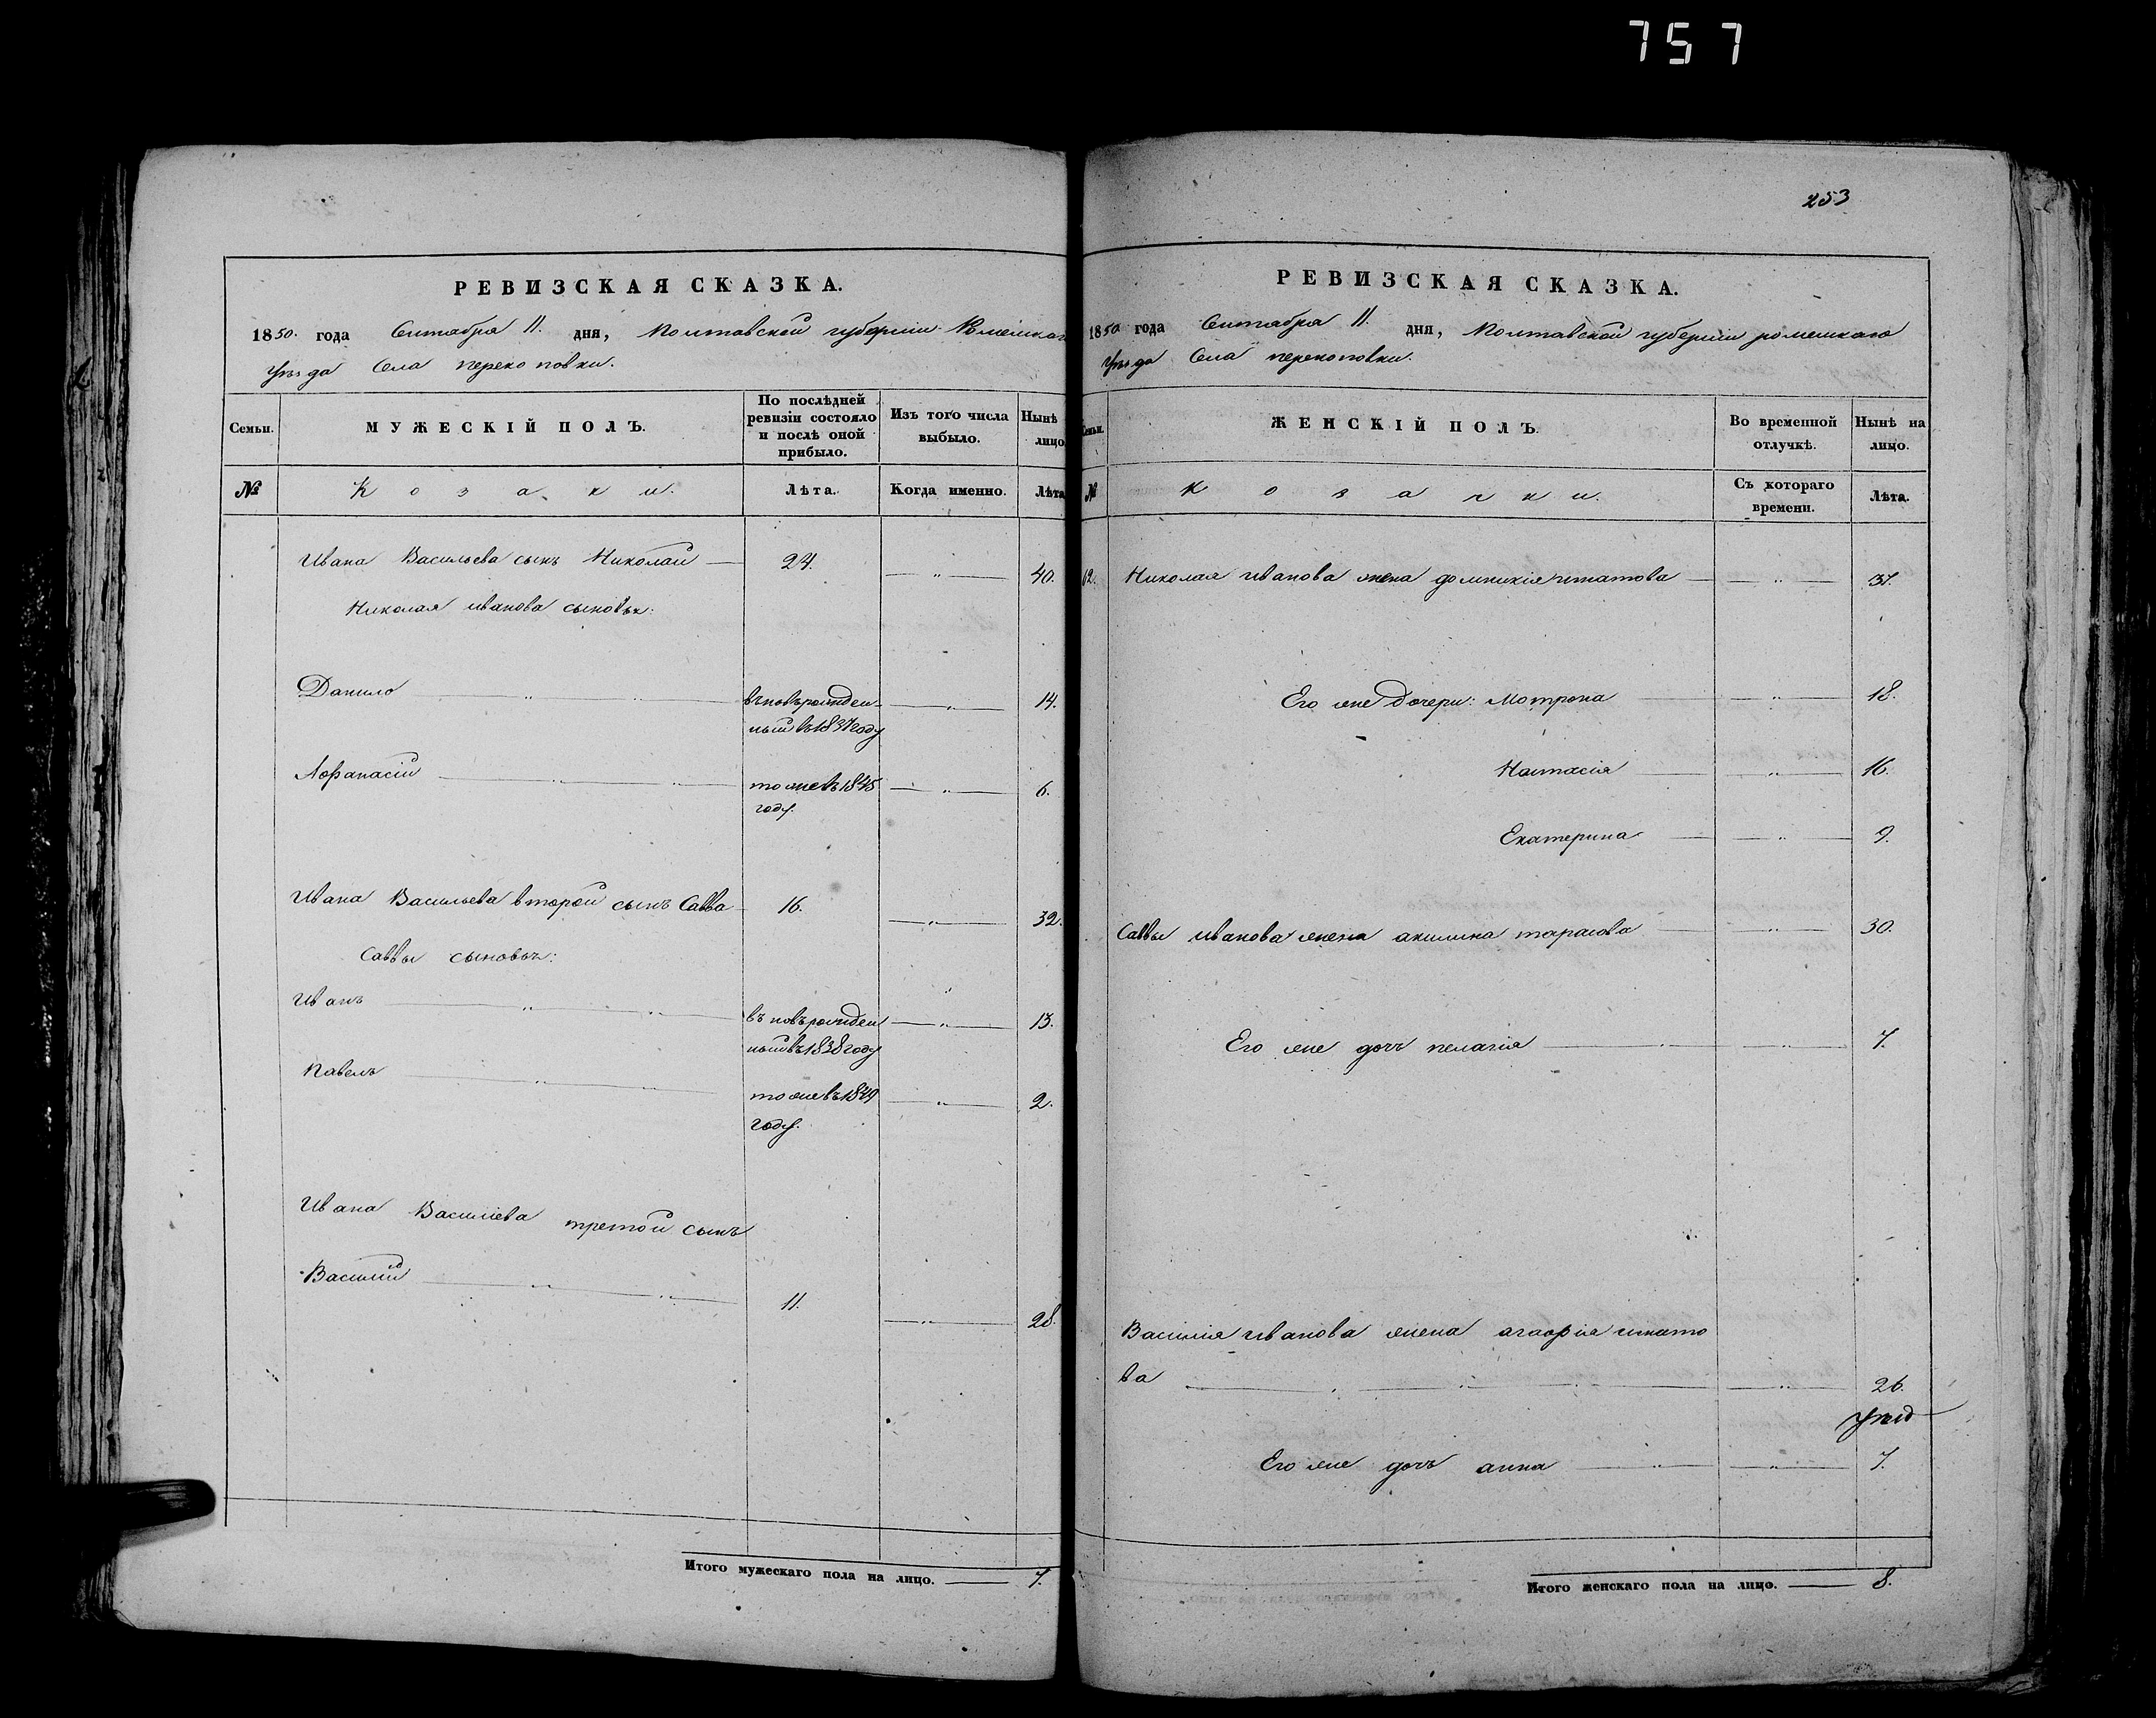 757
РЕВИЗСКАЯ СКАЗКА.
1850. года Сентабра 11. дня, Полтавской губерніи Роменскаг
уѣзда Села перекоповки.
Семьи.
МУЖЕСКІЙ ПОЛЪ.
По послѣдней ревизіи состояло и послѣ оной прибыло.
Изъ того числа выбыло.
Нынѣ лицо
№
Козаки.
Лѣта.
Когда именно.
Лѣта
Ивана Васильева сынъ Николай — 24. — „ — 40.
Николая иванова сыновья:
Данило — „ — въновърожден- — „ — 14.
ный въ 1837 году
Афанасій — „ — тоже въ 1845 — „ — 6.
году.
Ивана Васильева второй сынъ Савва — 16. — „ — 32.
Саввы сыновья:
Иванъ — „ — въ новърожден — „ — 13.
ный въ 1838 году
Павелъ — „ — тоже въ 1849 — „ — 2.
году.
Ивана Василіева третой сынъ
Василій — „ — 11. — „ — 28.
Итого мужескаго пола на лицо. — 7.
253
РЕВИЗСКАЯ СКАЗКА.
1850 года Сентабра 11. дня, Полтавской губерніи роменкаго
уѣзда Села перекоповки.
Семьи.
ЖЕНСКІЙ ПОЛЪ.
Во временной отлучкѣ.
Нынѣ на лицо.
№
Козачки.
Съ котораго времени.
Лѣта.
62. Николая иванова жена домникія игнатова — „ — 37.
Его же дочери: Мотрона — „ — 18.
Настасія — „ — 16.
Екатерина — „ — 9.
Саввы иванова жена акилина тарасова — „ — 30.
Его же дочъ пелагія — „ — 7.
Василія иванова жена агафія игнато
ва — „ — 26.
Его же дочъ анна — „ — 7.
Итого женскаго пола на лицо. — 8.